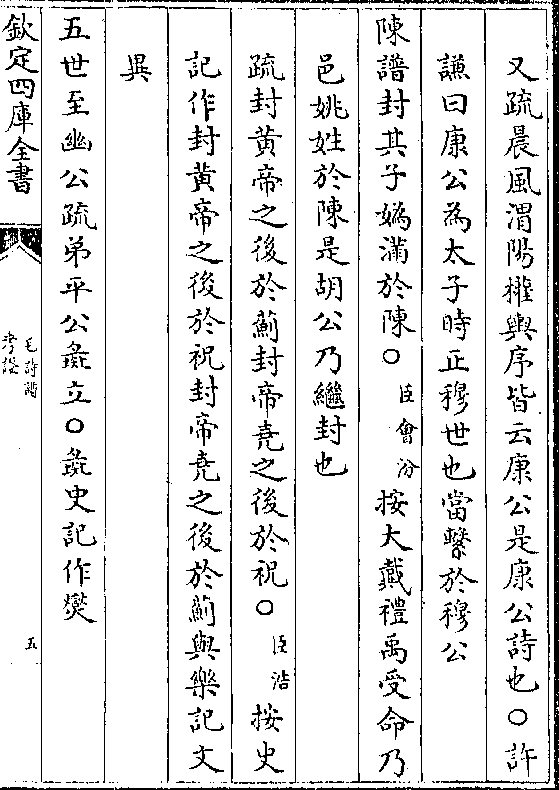 又疏晨風渭陽權輿序皆云康公是康公詩也○許
謙曰康公為太子時正穆世也當繫於穆公
陳譜封其子媯滿於陳○臣會汾按大戴禮禹受命乃
邑姚姓於陳是胡公乃繼封也
疏封黄帝之後於薊封帝堯之後於祝○臣浩按史
記作封黄帝之後於祝封帝堯之後於薊與樂記文
異
五世至幽公疏弟平公彘立○彘史記作燮
欽定四庫全書
毛詩譜
考證
五